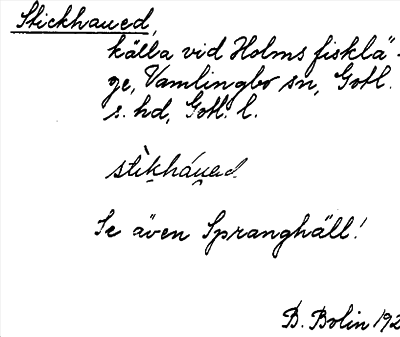 Stickhaued,
källa vid Holms fisklä-
ge, Vamlingbo sn, Gotl.
s. hd, Gotl. l.
stìkháu̯ed.
Se även Spranghäll!
B. Bolin 192